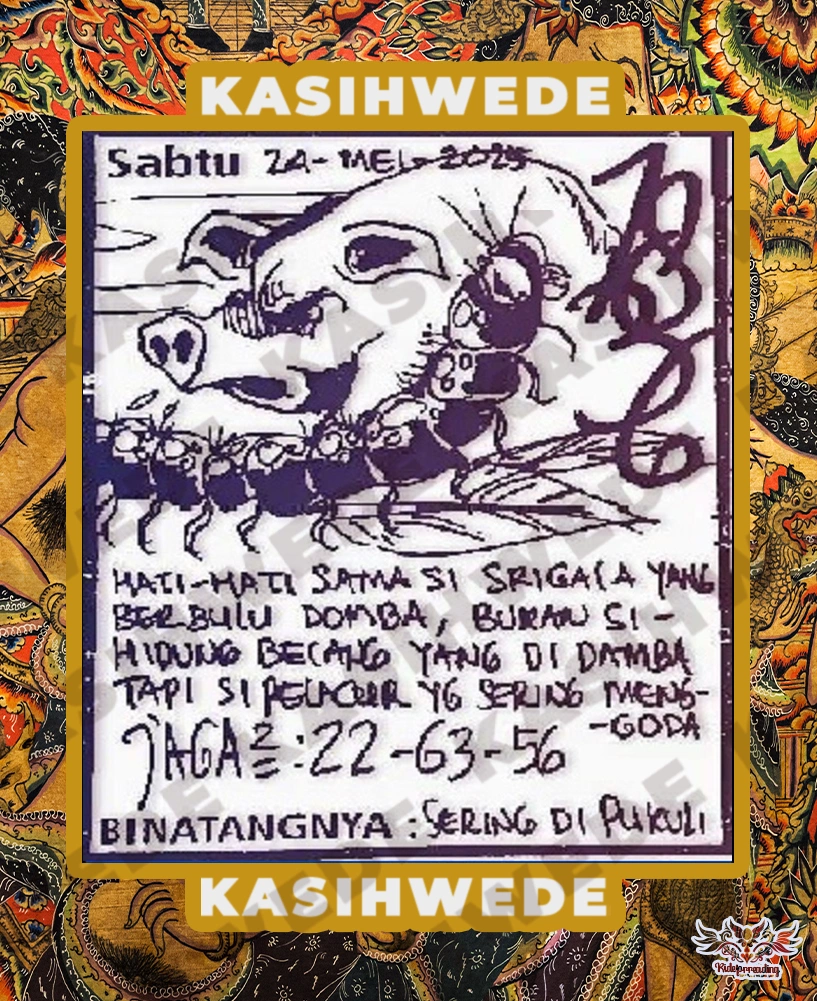 KASIHWEDE
Sabtu 24-MEI-2025
HATI-HATI SAMA SI SRIGALA YANG
BERBULU DOMBA, BUKAN SI-
HIDUNG BELANG YANG DI DAMBA
TAPI SI PELACUR YG SERING MENG-
-GODA
JAGA2=:22-63-56
BINATANGNYA : SERING DI PUKULI
KASIHWEDE